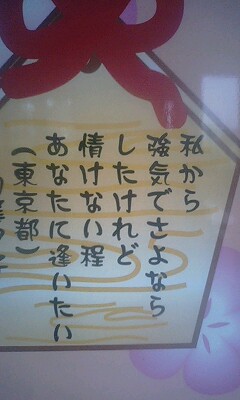 私から
強気でさよなら
したけれど
情けない程
あなたに逢いたい
（東京都）